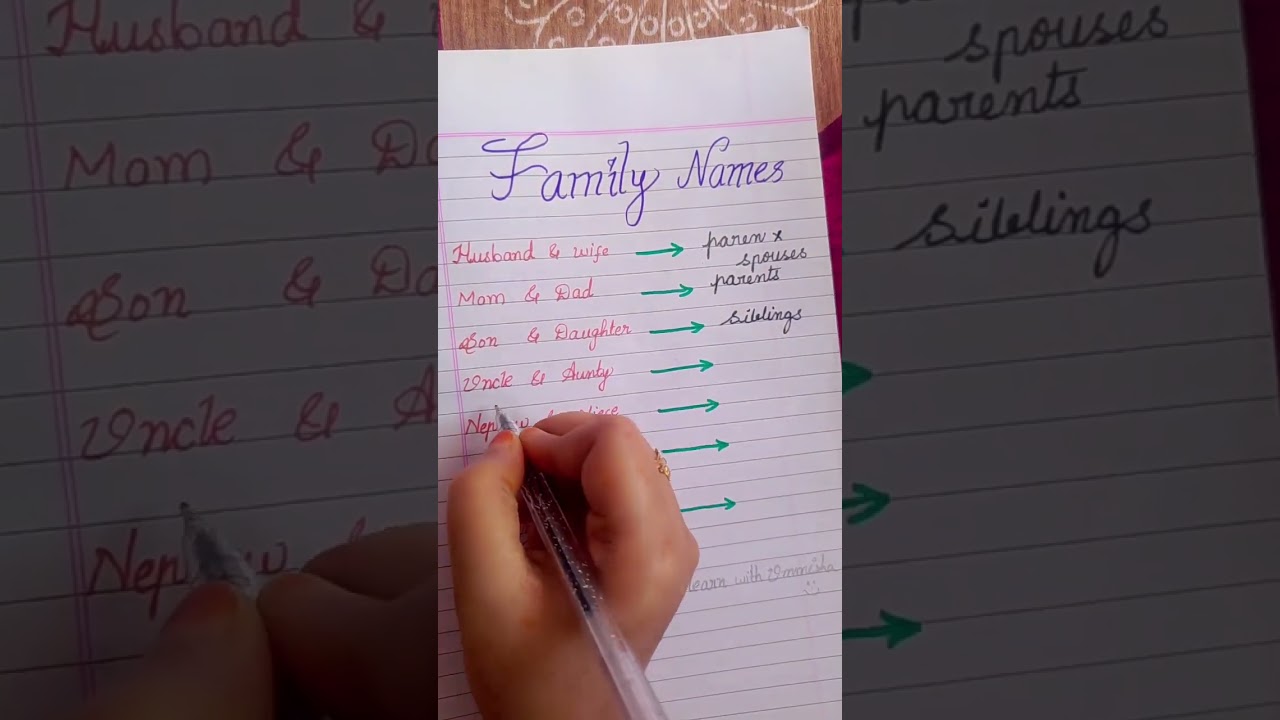 Family Names
Husband & wife → paren x
spouses
Mom & Dad → parents
Son & Daughter → siblings
Uncle & Aunty →
→
→
→
learn with Ummisha